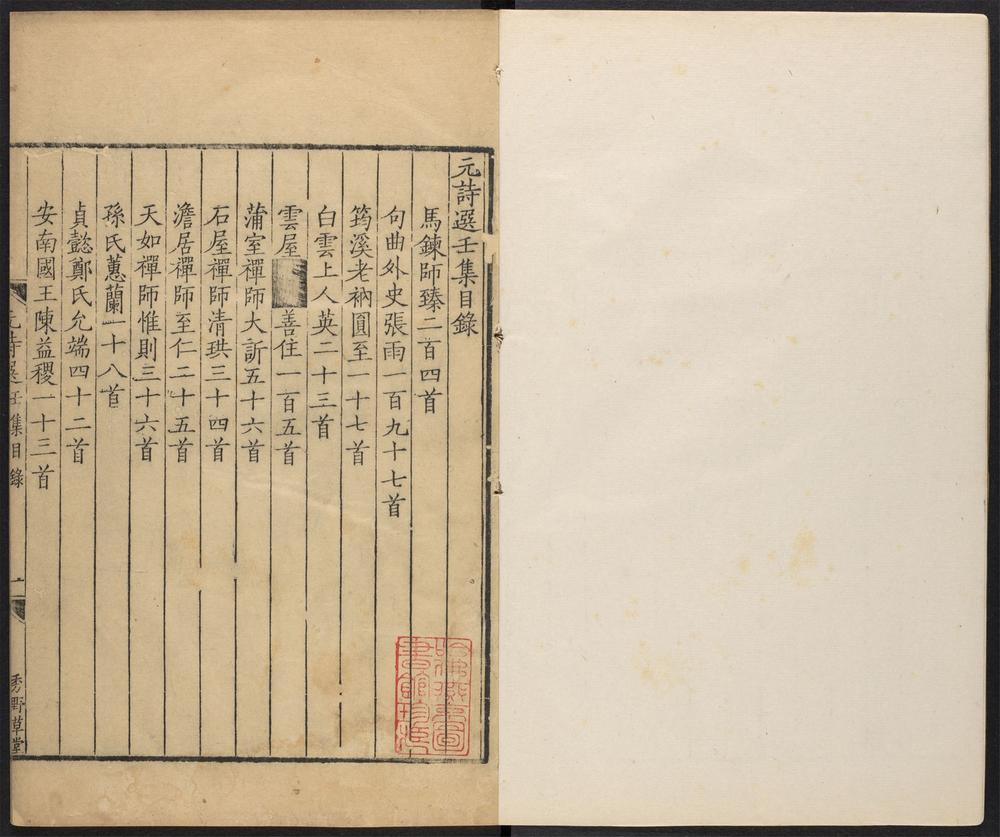 元詩選壬集目錄
馬鍊師臻二百四首
句曲外史張雨一百九十七首
筠溪老衲圓至一十七首
白雲上人英二十三首
雲屋善住一百五首
蒲室禪師大訢五十六首
石屋禪師清珙三十四首
澹居禪師至仁二十五首
天如禪師惟則三十六首
孫氏蕙蘭一十八首
貞懿鄭氏允端四十二首
安南國王陳益稷一十三首
元詩選壬集目錄
一
秀野草堂
哈佛燕京圖
書館珍藏